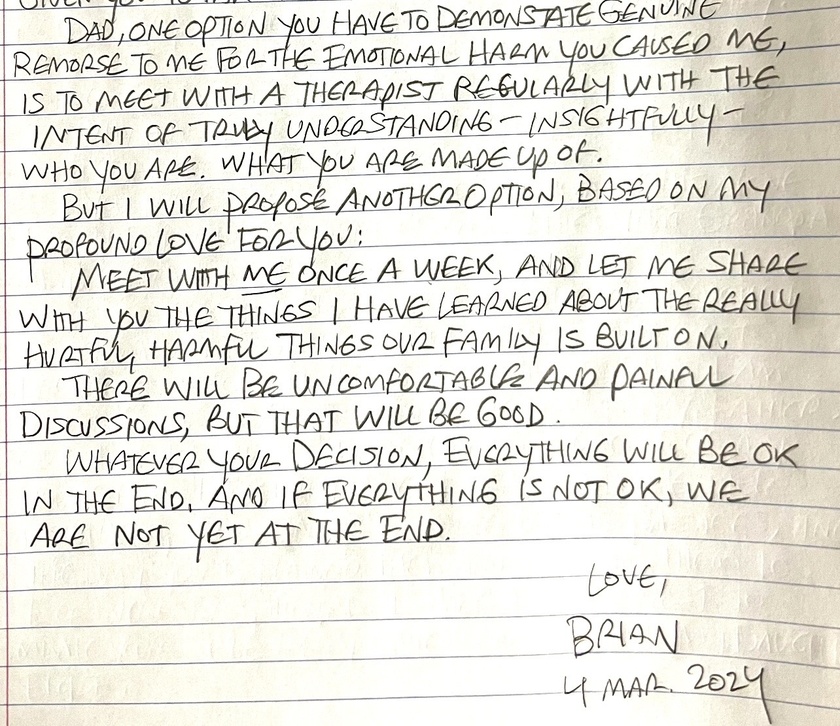 DAD, ONE OPTION YOU HAVE TO DEMONSTATE GENUINE
REMORSE TO ME FOR THE EMOTIONAL HARM YOU CAUSED ME,
IS TO MEET WITH A THERAPIST REGULARLY WITH THE
INTENT OF TRULY UNDERSTANDING - INSIGHTFULLY -
WHO YOU ARE. WHAT YOU ARE MADE UP OF.
BUT I WILL PROPOSE ANOTHER OPTION, BASED ON MY
PROFOUND LOVE FOR YOU:
MEET WITH ME ONCE A WEEK, AND LET ME SHARE
WITH YOU THE THINGS I HAVE LEARNED ABOUT THE REALLY
HURTFUL, HARMFUL THINGS OUR FAMILY IS BUILT ON.
THERE WILL BE UNCOMFORTABLE AND PAINFUL
DISCUSSIONS, BUT THAT WILL BE GOOD.
WHATEVER YOUR DECISION, EVERYTHING WILL BE OK
IN THE END. AND IF EVERYTHING IS NOT OK, WE
ARE NOT YET AT THE END.
LOVE,
BRIAN
4 MAR. 2024